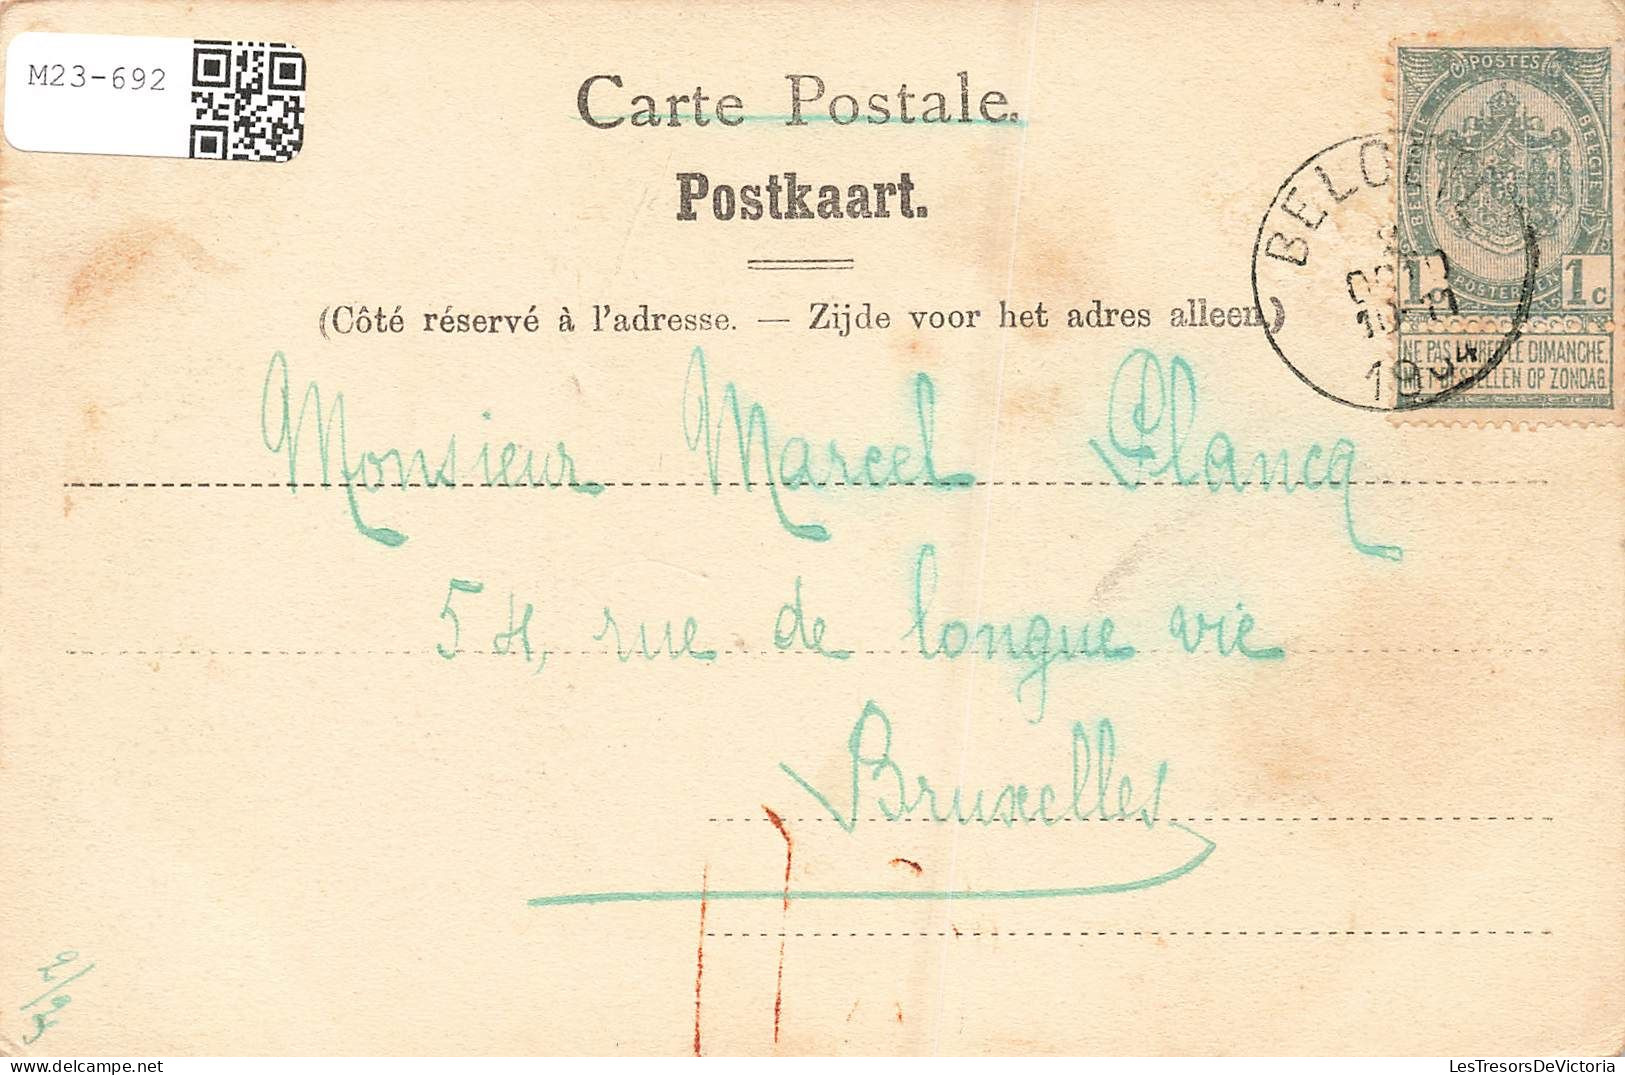 M23-692
Carte Postale.
Postkaart.
(Côté réservé à l'adresse. — Zijde voor het adres alleen.)
POSTES
BELGIQUE BELGIE
POSTERIJEN
1 1c
NE PAS LIVRER LE DIMANCHE.
NIET BESTELLEN OP ZONDAG.
1904
Monsieur Marcel Clancq
54, rue de longue vie
Bruxelles
LesTresorsDeVictoria.com